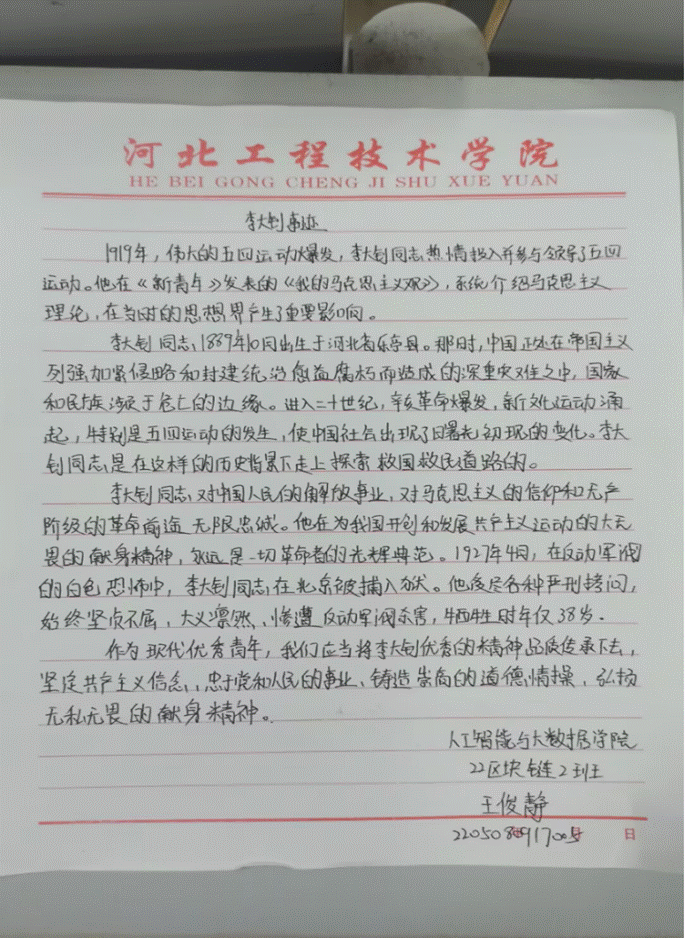 河北工程技术学院
HE BEI GONG CHENG JI SHU XUE YUAN
李大钊事迹
1919年，伟大的五四运动爆发，李大钊同志热情投入并参与领导了五四
运动。他在《新青年》发表的《我的马克思主义观》，系统介绍马克思主义
理论，在当时的思想界产生了重要影响。
李大钊同志1889年10月出生于河北省乐亭县。那时，中国正处在帝国主义
列强加紧侵略和封建统治愈益腐朽而造成的深重灾难之中，国家
和民族濒于危亡的边缘。进入二十世纪，辛亥革命爆发，新文化运动涌
起，特别是五四运动的发生，使中国社会出现了曙光初现的变化。李大
钊同志是在这样的历史背景下走上探索救国救民道路的。
李大钊同志对中国人民的解放事业，对马克思主义的信仰和无产
阶级的革命前途无限忠诚。他在为我国开创和发展共产主义运动的大无
畏的献身精神，永远是一切革命者的光辉典范。1927年4月，在反动军阀
的白色恐怖中，李大钊同志在北京被捕入狱。他受尽各种严刑拷问，
始终坚贞不屈、大义凛然、惨遭反动军阀杀害，牺牲时年仅38岁.
作为现代优秀青年，我们应当将李大钊优秀的精神品质传承下去，
坚定共产主义信念，忠于党和人民的事业、铸造崇高的道德情操，弘扬
无私无畏的献身精神。
人工智能与大数据学院
22区块链2班
王俊静
日